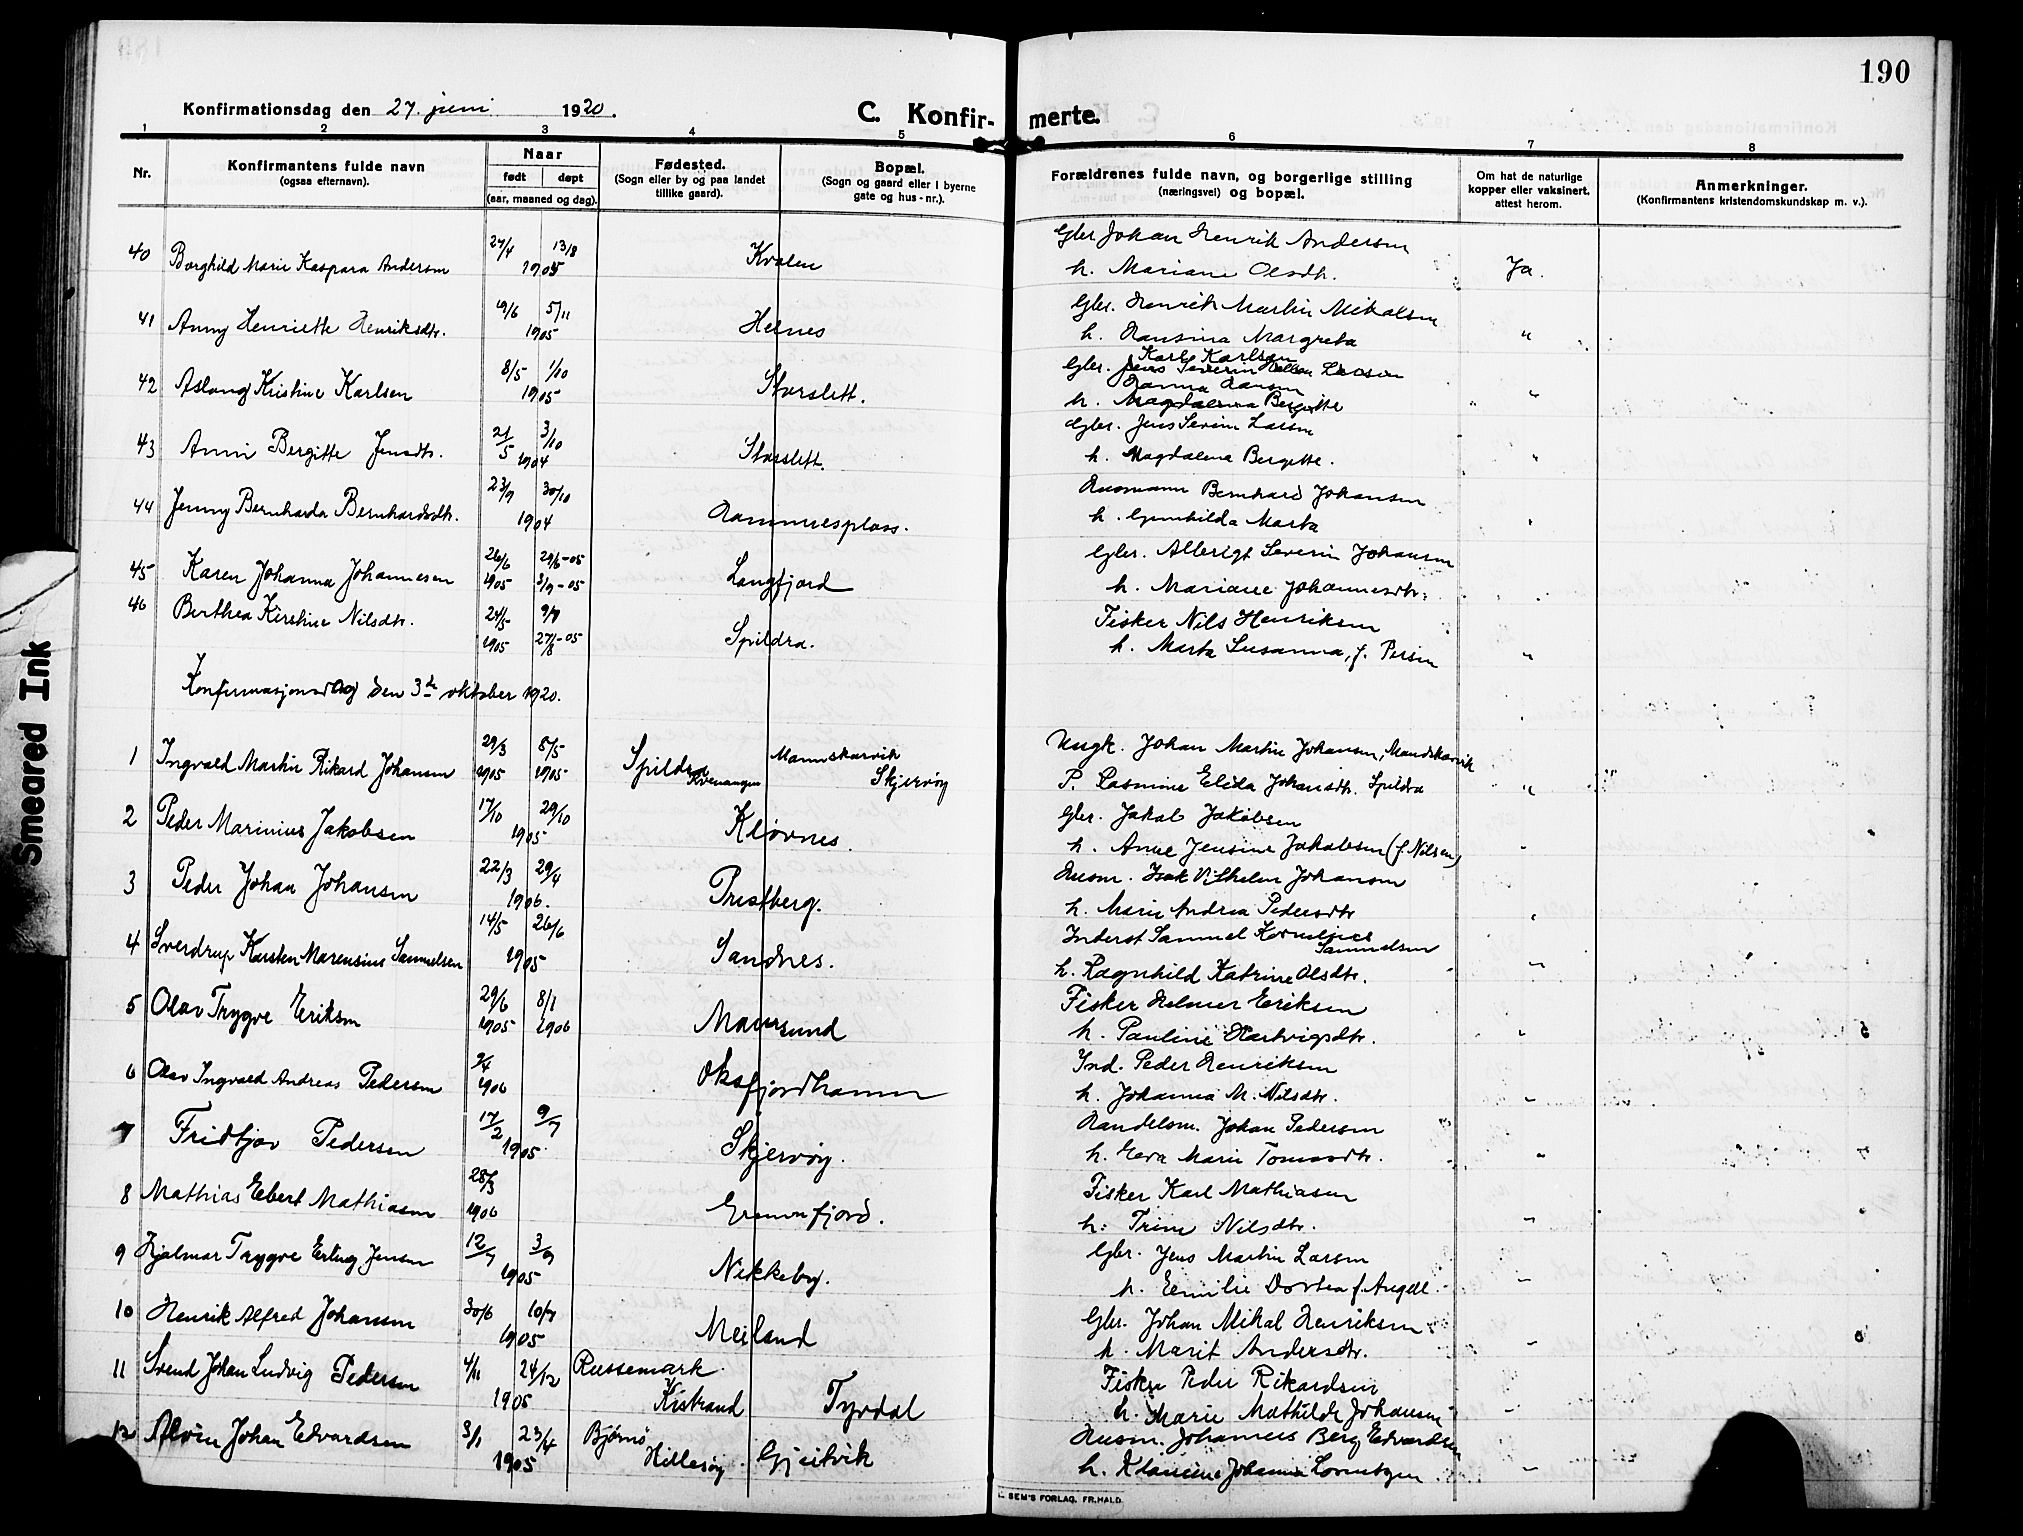 190
Konfirmationsdag den 27. juni 1920.
C. Konfir- merte.
1 2 3 4 5 6 7 8
Nr.
Konfirmantens fulde navn
(ogsaa efternavn).
Naar
født døpt
(aar, maaned og dag).
Fødested.
(Sogn eller by og paa landet
tillike gaard).
Bopæl.
(Sogn og gaard eller i byerne
gate og hus-nr.).
Forældrenes fulde navn, og borgerlige stilling
(næringsvei) og bopæl.
Om hat de naturlige
kopper eller vaksinert.
attest herom.
Anmerkninger.
(Konfirmantens kristendomskundskap m. v.).
40 Borghild Marie Kaspara Andersen 27/4 13/8 1905 Kvalen
Gbr. Johan Henrik Andersen
h. Mariane Olsdtr. Ja.
41 Anny Henriette Henriksdtr. 19/6 5/11 1905 Helnes
Gbr. Henrik Martin Mikalsen
h. Hansina Margreta "
42 Aslaug Kristine Karlsen 8/5 1/10 1905 Storslett.
Karl Karlsen
Gbr. Jens Severin Larsen
Hanna Hansen
h. Magdalena Bergitte "
43 Anni Bergitte Jensdtr. 21/5 3/10 1904 Storslett.
Gbr. Jens Severin Larsen
h. Magdalena Bergitte. "
44 Jenny Bernharda Bernhardsdtr. 23/9 30/10 1904 Hamnesplass.
Husmann Bernhard Johansen
h. Gunhilda Marta "
45 Karen Johanna Johannesen 26/6 1905 29/6-05 3/9-05 Langfjord
Gbr. Allerigt Severin Johansen
h. Mariane Johannesdtr.
46 Berthea Kirstine Nilsdtr. 24/5 1905 9/7 27/8-05 Spildra.
Fisker Nils Henriksen
h. Marta Susanna, f. Persen "
Konfirmasjonsdag den 3de oktober 1920.
1 Ingvald Martin Rikard Johansen 29/3 1905 8/5 1905 Spildra Kvænangen Mannskarvik Skjervøy
Ungk. Johan Martin Johansen, Mandskarvik
P. Rasmine Elida Johansdtr. Spildra "
2 Peder Marinius Jakobsen 17/10 29/10 1905 Kløvnes.
Gbr. Jakob Jakobsen
h. Anne Jensine Jakobsen (f. Nilsen) "
3 Peder Johan Johansen 22/3 29/4 1906. Prestberg.
Husm. Isak Vilhelm Johansen
h. Marie Andrea Pedersdtr "
4 Sverdrup Karsten Marensius Samuelsen 14/5 26/6 1905 Sandnes.
Inderst Samuel Kornelius
Samuelsen
h. Ragnhild Katrine Olsdtr. "
5 Olav Trygve Eriksen 29/6 1905 8/1 1906 Maursund
Fisker Helmer Eriksen
h. Pauline Hartvigsdtr. "
6 Olav Ingvald Andreas Pedersen 2/4 1906 Oksfjordhamn
Ind. Peder Henriksen
h. Johanna M. Nilsdtr. "
7 Fridtjov Pedersen 17/2 9/7 1905 Skjervøy.
Handelsm. Johan Pedersen
h. Eva Marie Tomasdtr. "
8 Mathias Ebert Mathiasen 28/3 1906 Gremfjord.
Fisker Karl Mathiasen
h. Trine Nilsdtr. "
9 Hjalmar Trygve Erling Jensen 12/7 3/9 1905 Nikkeby.
Gbr. Jens Martin Larsen
h. Emilie Dortea f. Angell. "
10 Henrik Alfred Johansen 30/6 10/9 1905 Meiland
Gbr. Johan Mikal Henriksen
h. Marit Andersdtr. "
11 Svend Johan Ludvig Pedersen 4/11 24/12 1905 Russemark. Kistrand Tyvdal
Fisker Peder Rikardsen
h. Marie Mathilde Johansen "
12 Alvin Johan Edvardsen 3/1 23/4 1905 Bjørnø Hillesøy. Gjeitvik
Husm. Johannes Berg Edvardsen
h. Klausine Johanna Lorentzen "
SEM'S FORLAG, FR.HALD
Smeared Ink